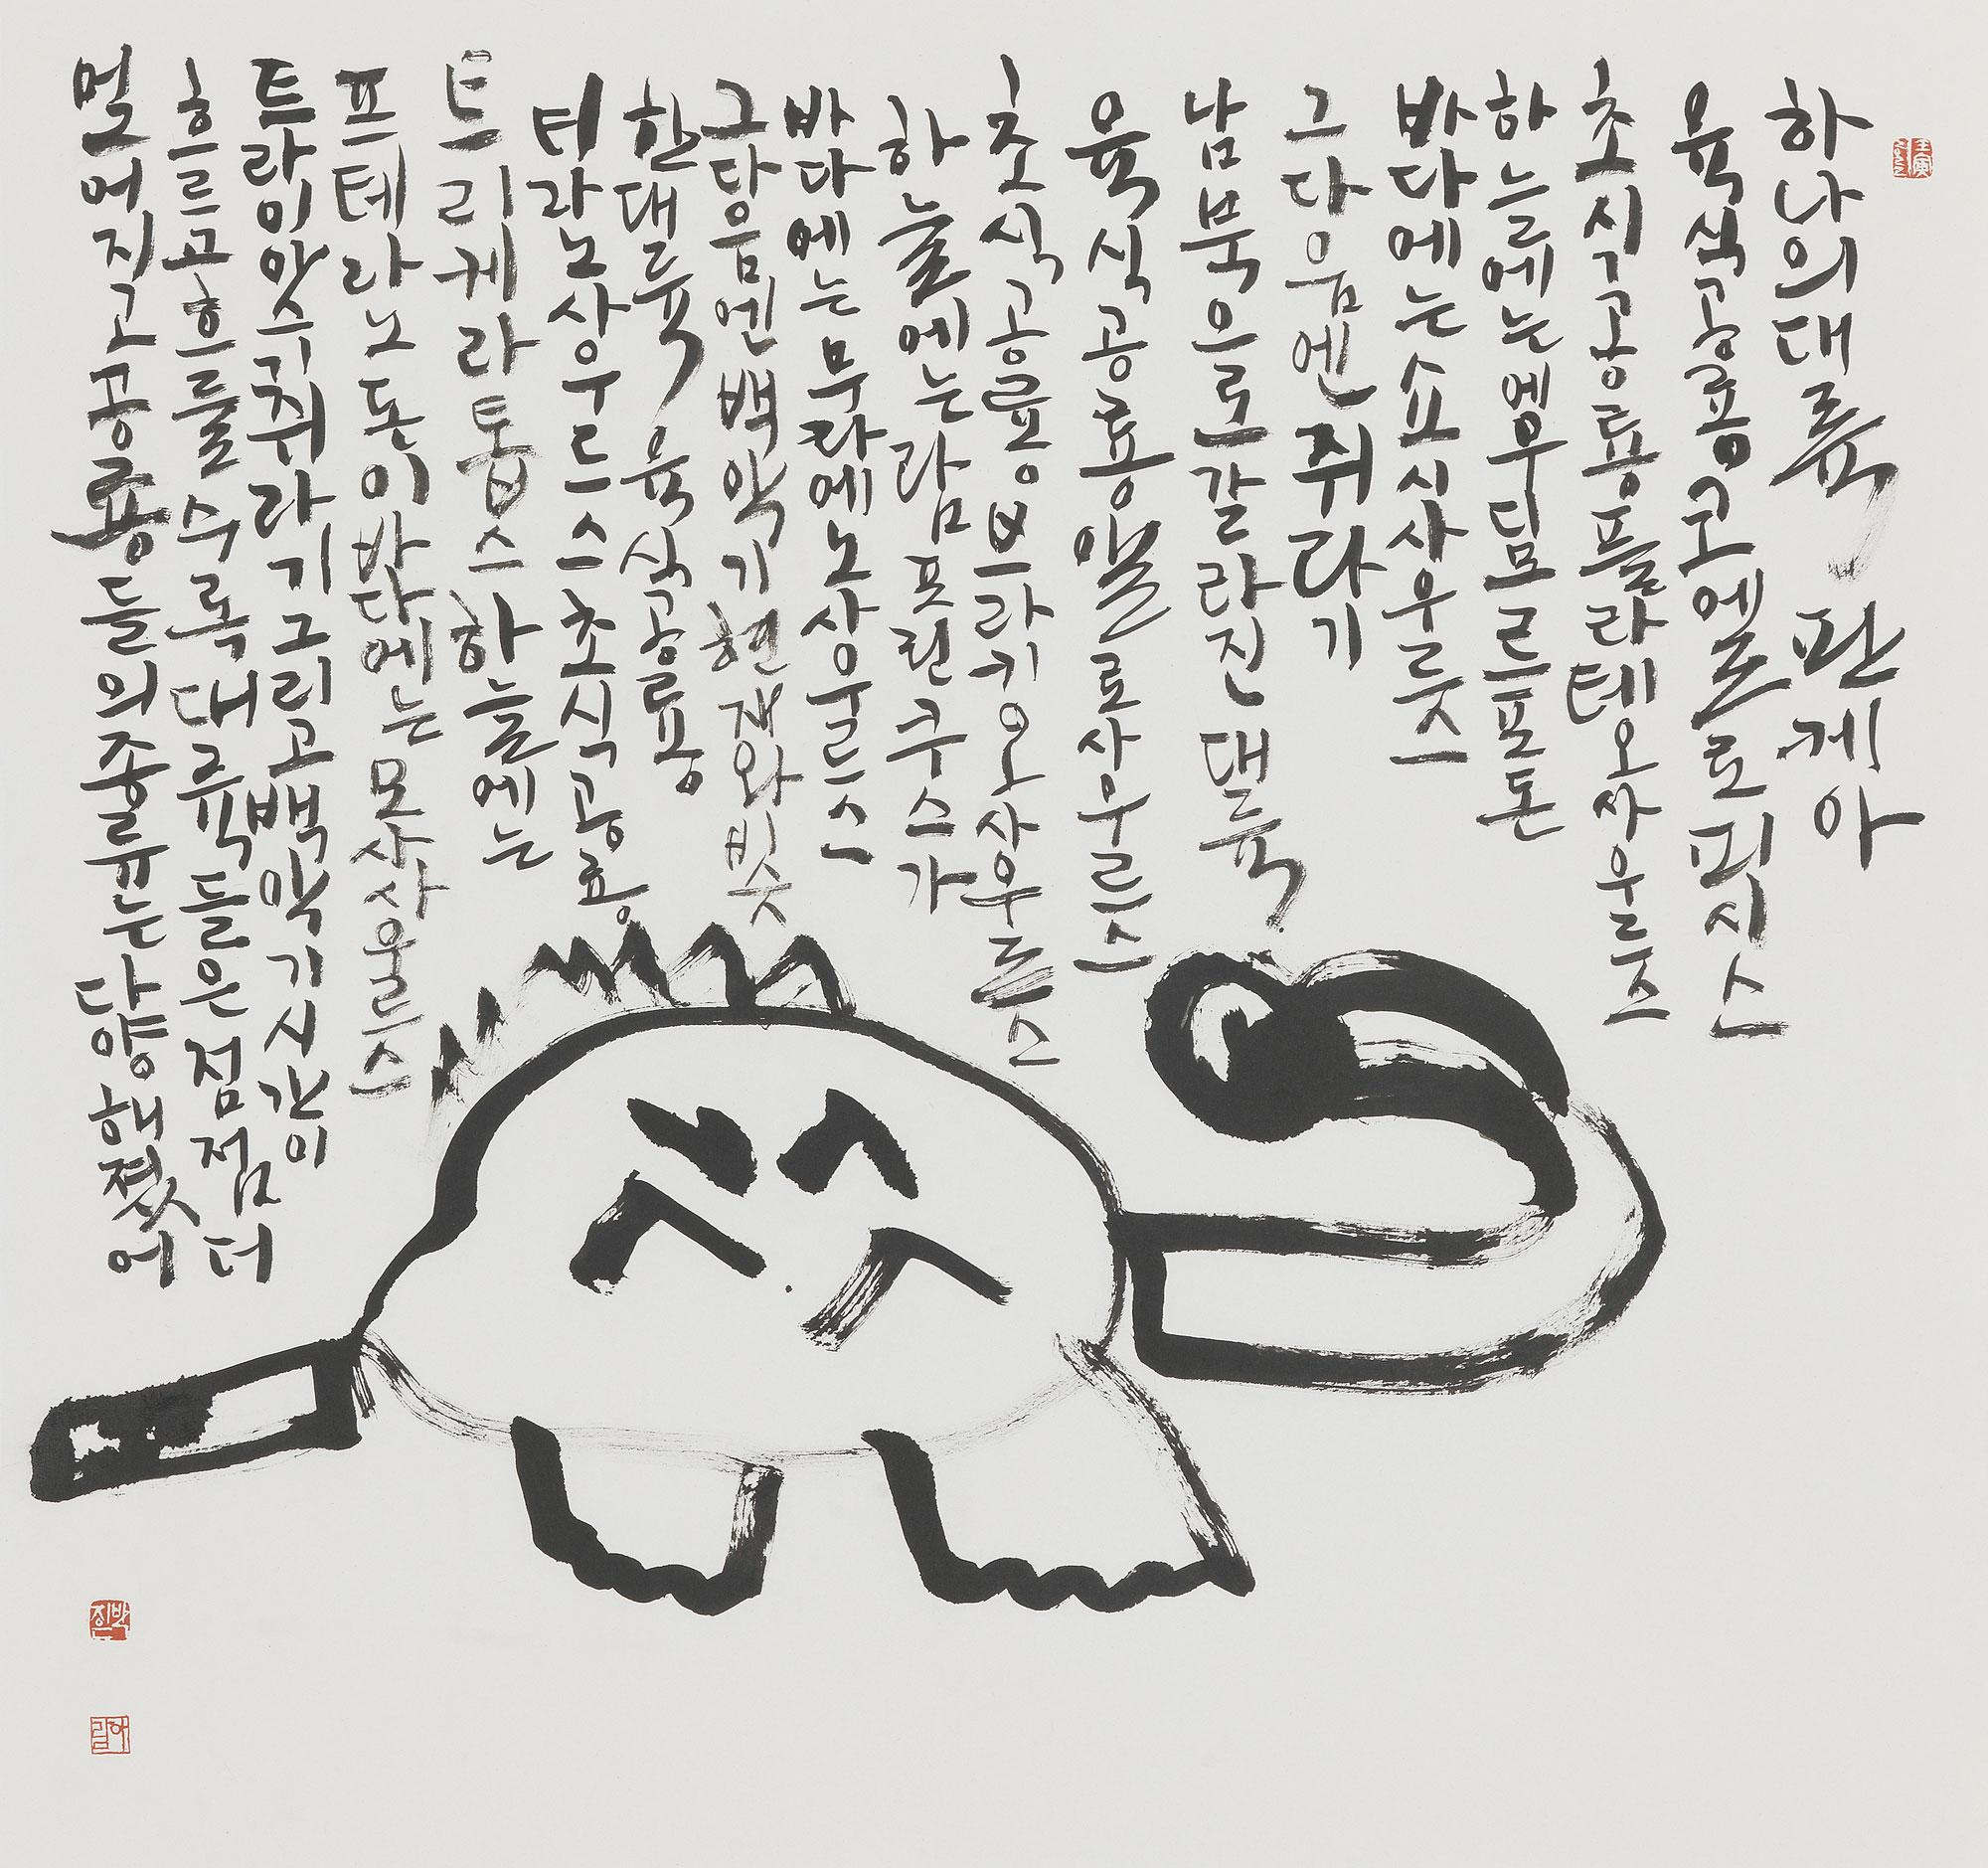 하나의대륙, 판게아
육식공룡코엘로피시스
초식공룡플라테오사우르스
하늘에는에우디모르포돈
바다에는쇼시사우르스
그다음엔쥐라기
남북으로갈라진대륙
육식공룡알로사우르스
초식공룡브라키오사우르스
하늘에는람포린쿠스가
바다에는무라에노사우르스
그다음엔백악기현재와비슷
한대륙육식공룡
티라노사우르스초식공룡
트리케라톱스하늘에는
프테라노돈이바다에는모사사우르스
트라이아스기쥐라기그리고백악기시간이
흐르고흐를수록대륙들은점점더
멀어지고공룡들의종류는다양해졌어
壬寅